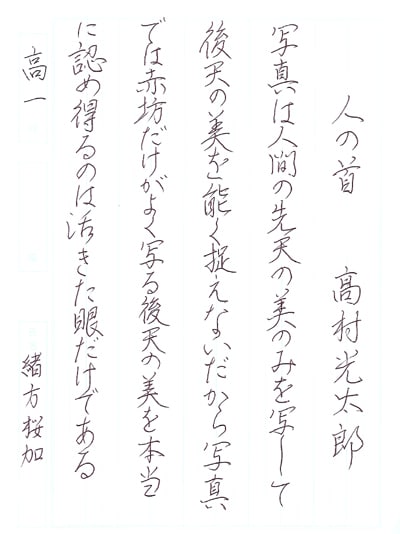 人の首　高村光太郎
写真は人間の先天の美のみを写して
後天の美を能く捉えないだから写真
では赤坊だけがよく写る後天の美を本当
に認め得るのは活きた眼だけである
高一　緒方桜加